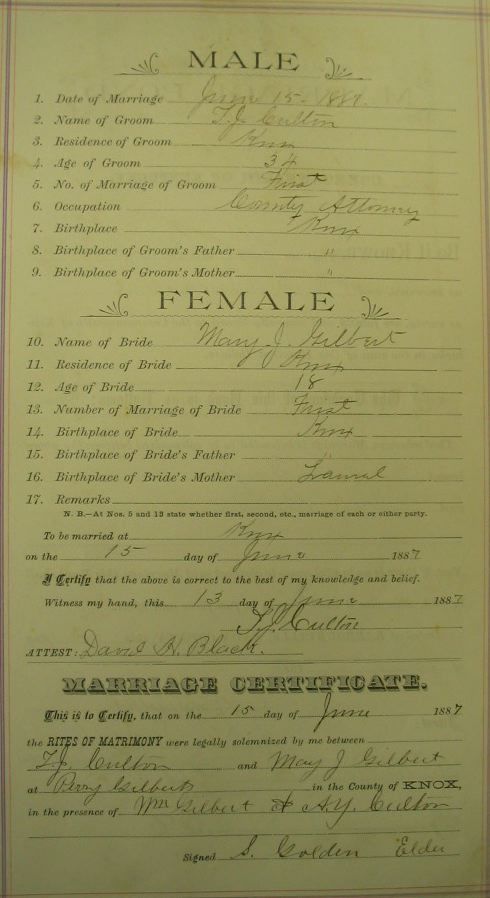 MALE
1. Date of Marriage June 15- 1887.
2. Name of Groom T.J. Culton
3. Residence of Groom Knox
4. Age of Groom 34
5. No. of Marriage of Groom First
6. Occupation County Attorney
7. Birthplace Knox
8. Birthplace of Groom's Father "
9. Birthplace of Groom's Mother "
FEMALE
10. Name of Bride Mary J. Gilbert
11. Residence of Bride Knox
12. Age of Bride 18
13. Number of Marriage of Bride First
14. Birthplace of Bride Knox
15. Birthplace of Bride's Father "
16. Birthplace of Bride's Mother Laurel
17. Remarks
N. B.—At Nos. 5 and 13 state whether first, second, etc., marriage of each or either party.
To be married at Knox
on the 15 day of June 1887
I Certify that the above is correct to the best of my knowledge and belief.
Witness my hand, this 13 day of June 1887
T.J. Culton
ATTEST: David H. Black.
MARRIAGE CERTIFICATE.
This is to Certify, that on the 15 day of June 1887
the RITES OF MATRIMONY were legally solemnized by me between
T.J. Culton and Mary J Gilbert
at Perry Gilberts in the County of KNOX,
in the presence of Wm Gilbert & A.Y. Culton
Signed S. Golden Elder